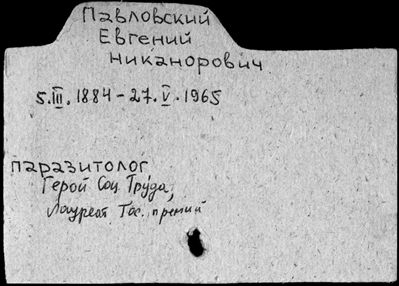 Павловский
Евгений
Никанорович
5.III.1884 - 27.V.1965
паразитолог
Герой Соц Труда,
Лауреат Гос. премий